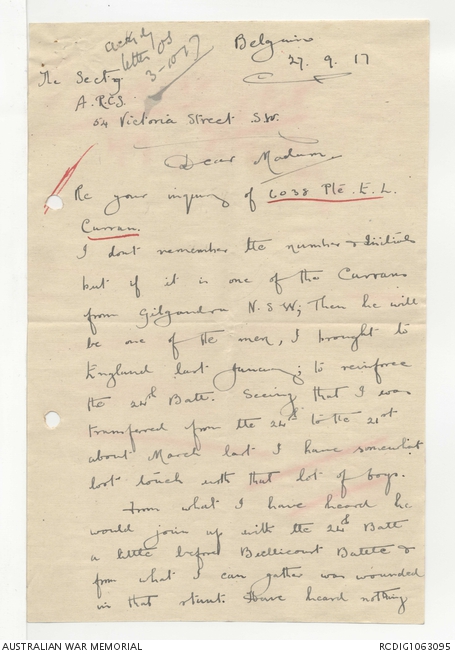 ackd by
letter JS
3-10-17
Belgium
27.9.17
The Secty
A.R.C.S.
54 Victoria Street S.W.
Dear Madam
Re your inquiry of 6038 Pte. E. L.
Curran.
I dont remember the number & Initials
but if it is one of the Currans
from Gilgandra N.S.W; Then he will
be one of the men, I brought to
England last January; to reinforce
the 24th Batt. Seeing that I was
transferred from the 24th to the 21st
about March last I have somewhat
lost touch with that lot of boys.
From what I have heard he
would join up with the 24th Batt
a little before Bullicourt Battle &
from what I can gather was wounded
in that stunt. Have heard nothing
AUSTRALIAN WAR MEMORIAL
RCDIG1063095